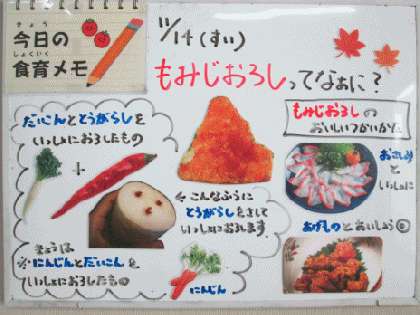 きょう
今日の
しょくいく
食育メモ
11/14(すい)
もみじおろしってなぁに？
だいこんととうがらしを
いっしょにおろしたもの
+
きょうは
※にんじんとだいこんを
いっしょにおろしたもの
こんなふうに
とうがらしをさして
いっしょにおろします
にんじん
もみじおろしの
おいしいつかいかた
おさしみ
といっしょに
あげものとあいしょう◎